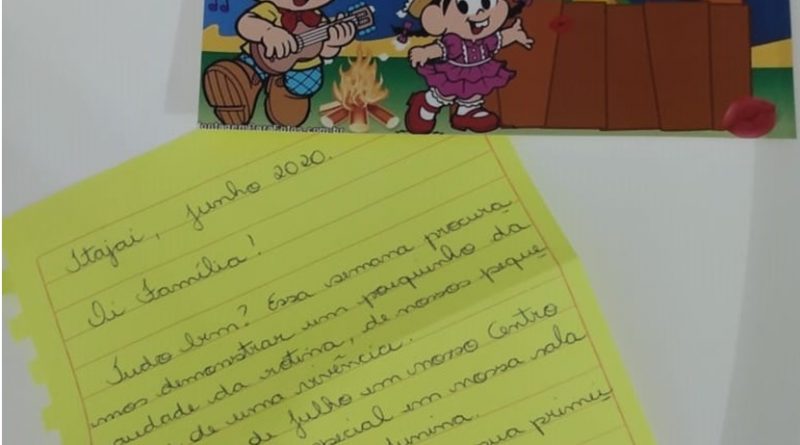 Itajaí, junho 2020.
Oi Família!
Tudo bem? Essa semana procura
mos demonstrar um pouquinho da
audade da rotina, de nossos peque
de uma vivência.
de julho em nosso Centro
pecial em nossa sala
unina.